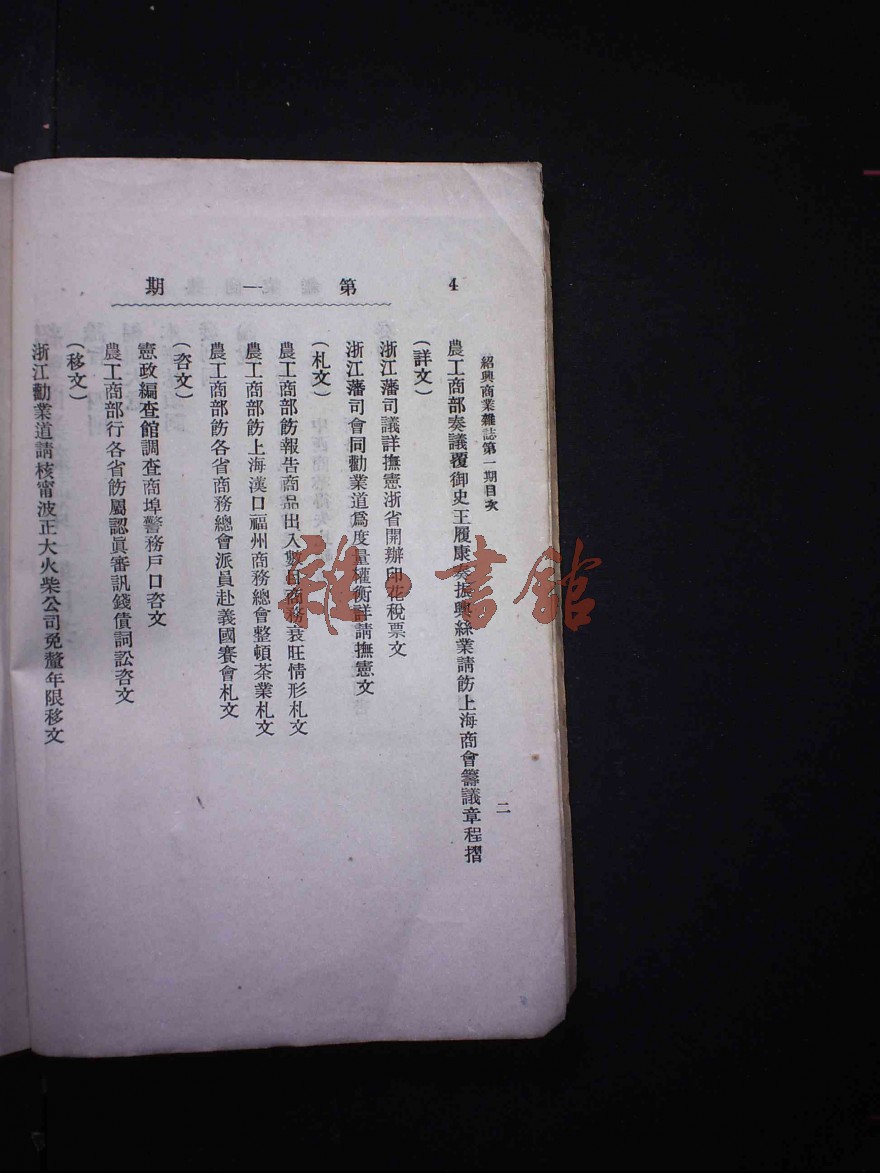 4
第一期
紹興商業雜誌第一期目次
二
農工商部奏議覆御史王履康奏振興絲業請飭上海商會籌議章程摺
(詳文)
浙江藩司議詳撫憲浙省開辦印花稅票文
浙江藩司會同勸業道爲度量權衡詳請撫憲文
(札文)
農工商部飭報告商品出入數目商務衰旺情形札文
農工商部飭上海漢口福州商務總會整頓茶業札文
農工商部飭各省商務總會派員赴義國賽會札文
(咨文)
憲政編查館調查商埠警務戶口咨文
農工商部行各省飭屬認眞審訊錢債詞訟咨文
(移文)
浙江勸業道請核甯波正大火柴公司免釐年限移文
雜·書館